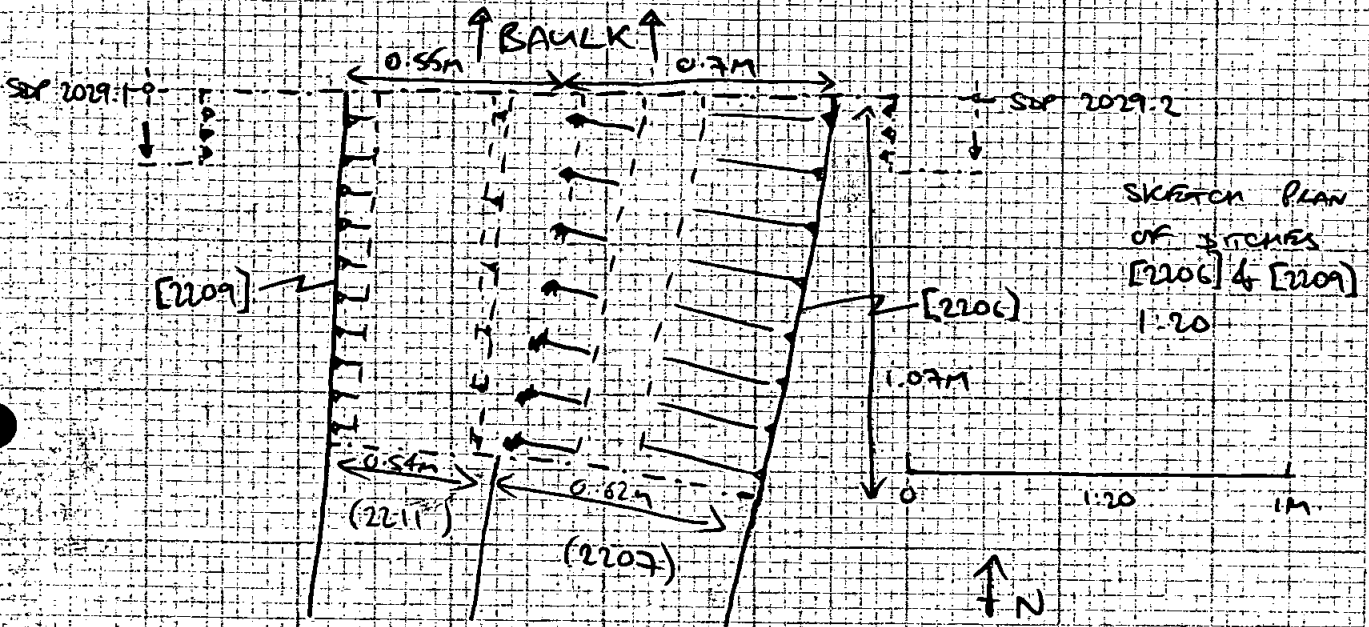 BAULK
0.55M
0.7M
SDP 2029.1
SDP 2029.2
SKETCH PLAN
OF DITCHES
[2206] & [2209]
1:20
[2209]
[2206]
1.07M
0.54M
0.62M
(2211)
(2207)
0 1:20 1M
N